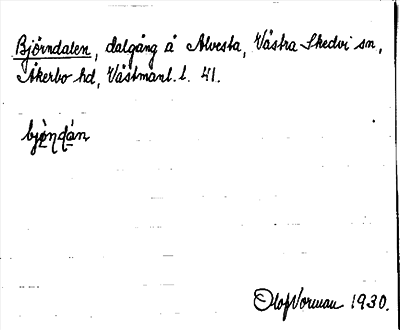 Björndalen, dalgång å Alvesta, Västra Skedvi sn,
Åkerbo hd, Västmanl. l. 41.
bjò̤ṇdá̤n
Olof Vorman 1930.